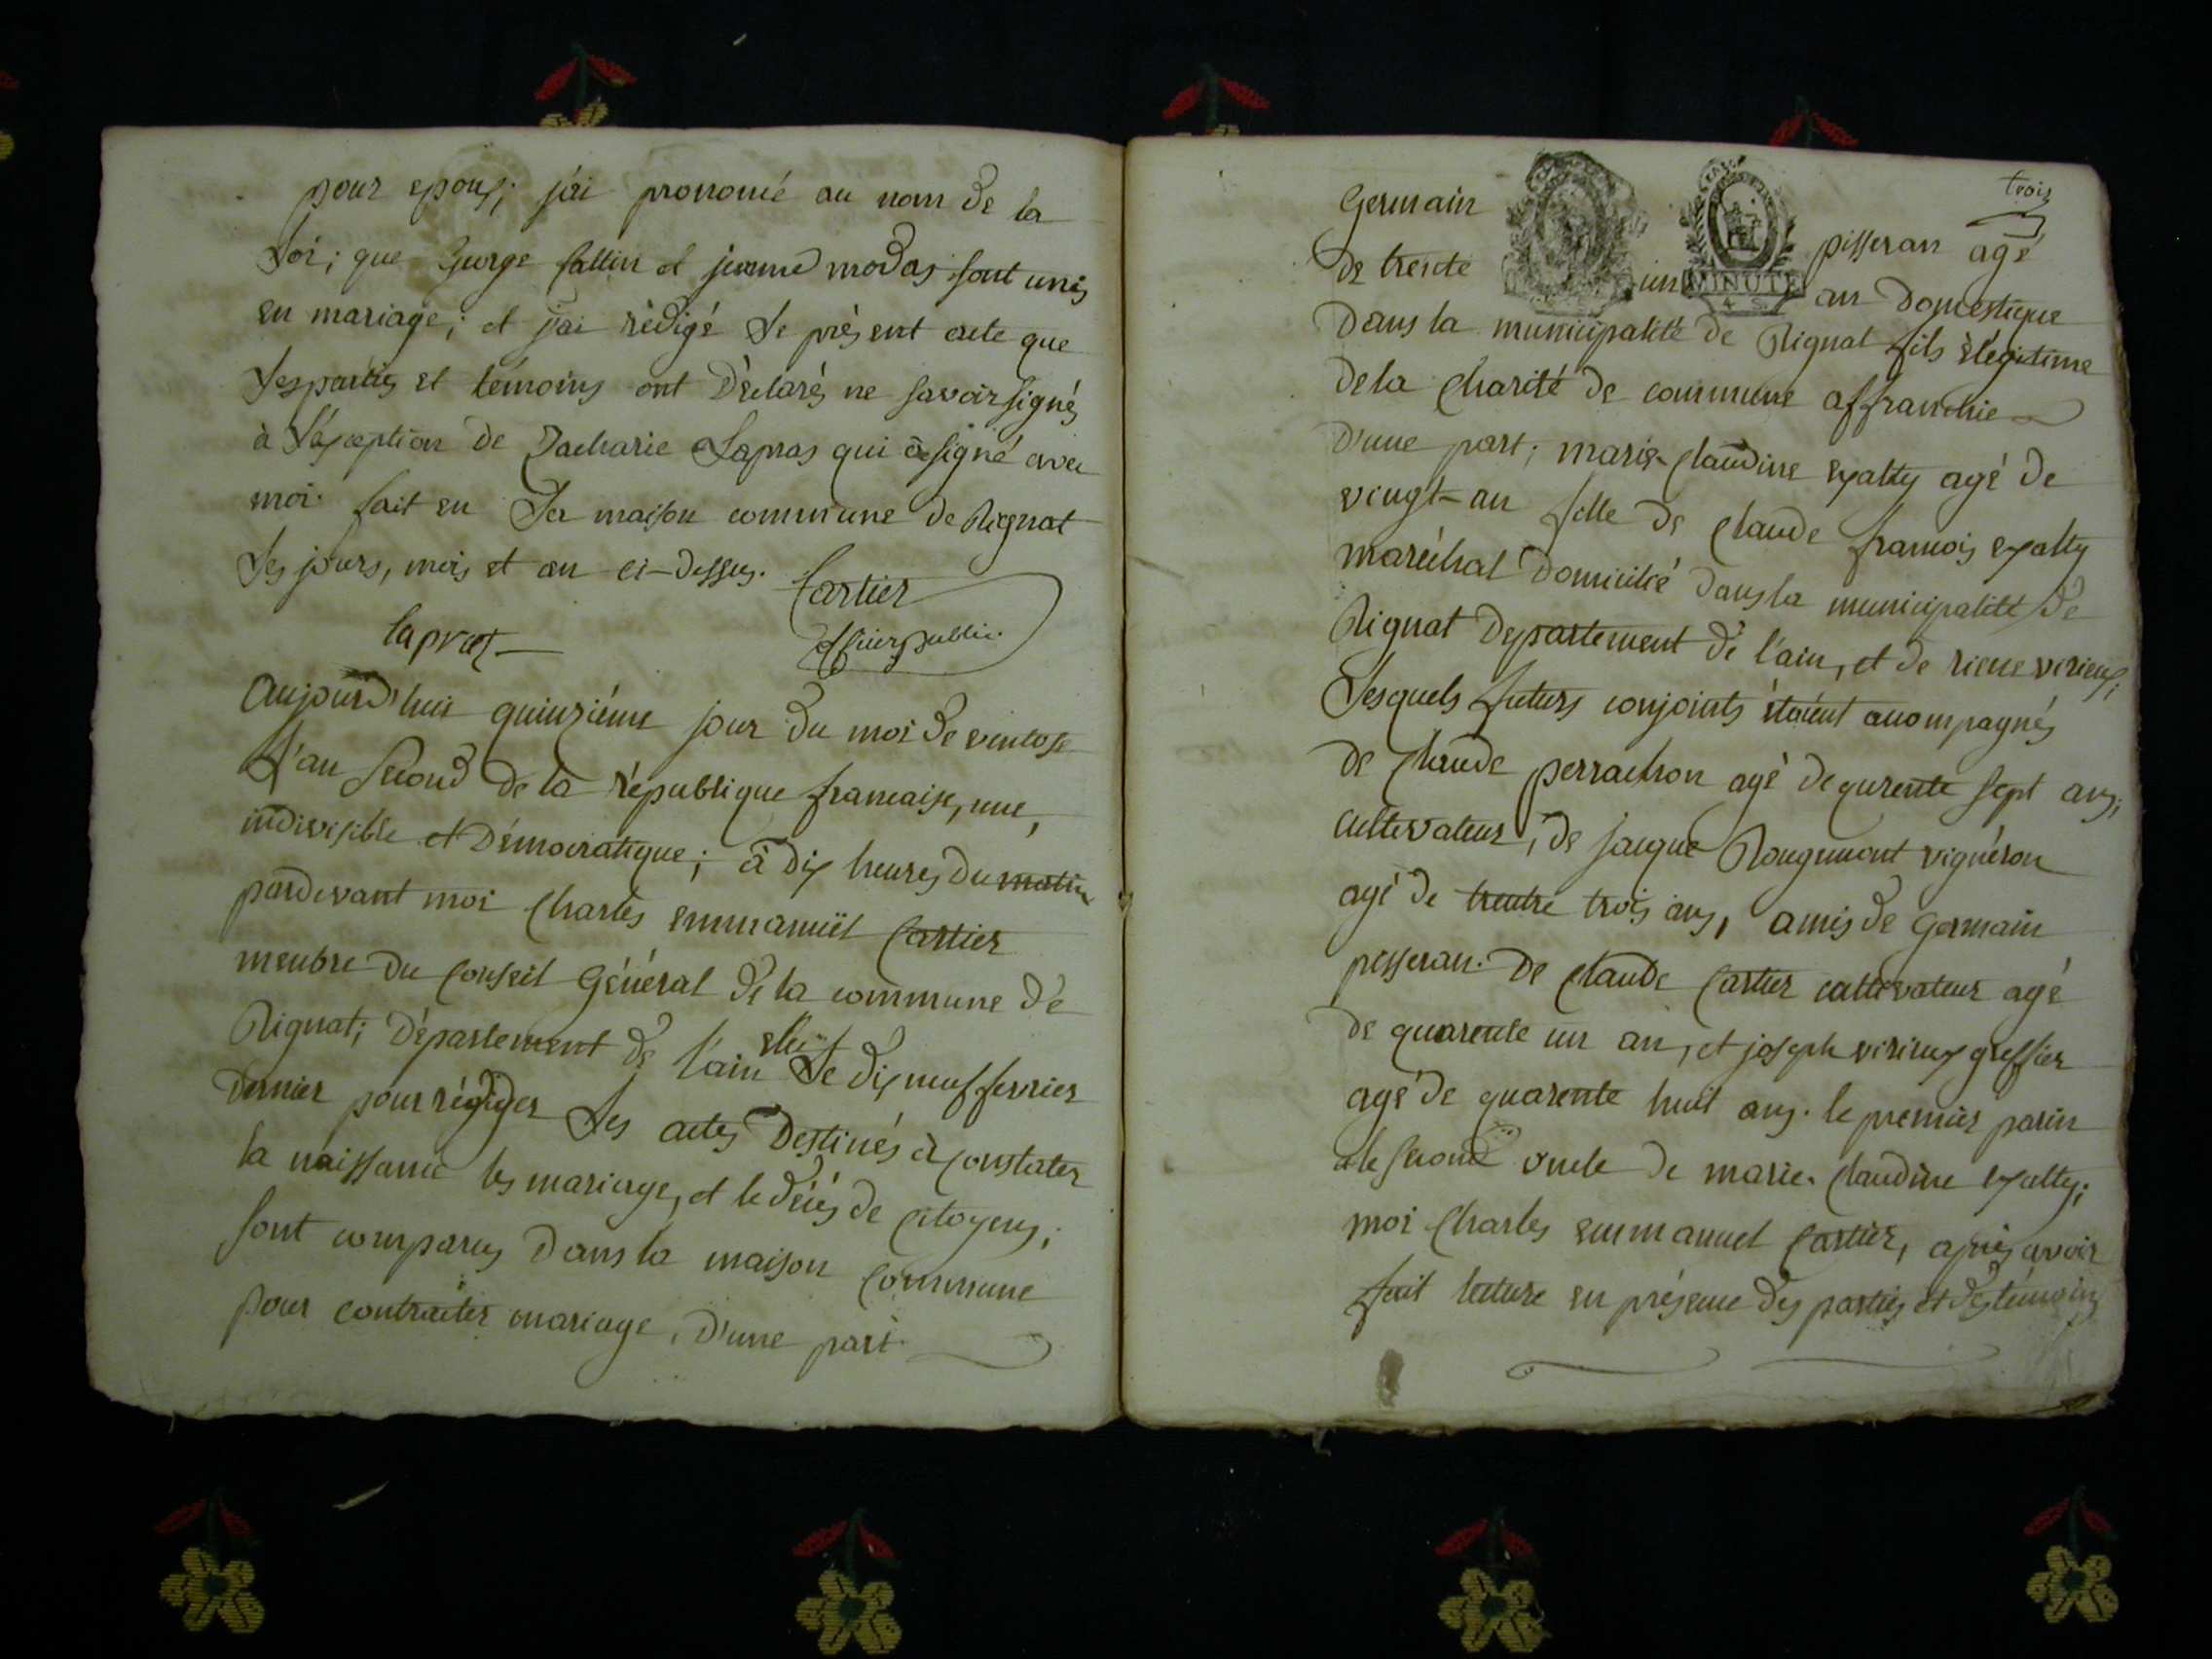 pour epoux; j'ai prononcé au nom de la
Loi; que George fattin et jeanne modas sont unis
en mariage; et j'ai rèdigé Le présent acte que
Les parties et témoins ont Déclarés ne savoir signés
à L'éxception de Zacharie Lapras qui a signé avec
moi. fait en La maison commune de Rignat
Les jours, mois et an ci-dessus. Cartier
lapras officier public.
Aujourd'hui quinziéme jour du moi de ventose
L'an second de la république francaise, une,
indivisible et Démocratique; à dix heures du matin
pardevant moi Charles emmanuël Cartier
menbre du Conseil Général de la commune de
Rignat; Département de l'ain elu Le dix neuf fevrier
dernier pour rédiger Les actes Destinés à Constater
la naissance les mariage, et le décés de Citoyens;
sont comparus Dans la maison Commune
pour contracter mariage, D'une part.
trois
Germain pisseran agé
MINUTE
4 S.
de trente un an Domestique
Dans la municipalité de Rignat fils élégitime
de la Charité de commune affranchie
D'une part; marie-Claudine exalty agé de
vingt-an fille de Claude francois exalty
maréchal Domicilié Dans la municipalité de
Rignat Departement de l'ain, et de virieux;
Lesquels futurs conjoints étoient accompagnés
de Claude perrachon agé de qurente sept ans,
cultivateur, de jacque Rougemont vignéron
agé de trentre trois ans, amis de Germain
pesseran. De Claude Cartier cultivateur agé
de quarente un an, et joseph virieux greffier
agé de quarente huit ans. le premier parin
et le second oncle de marie. Claudine exalty;
moi Charles emmanuel Cartier, après avoir
fait lecture en présence des parties et des témoins